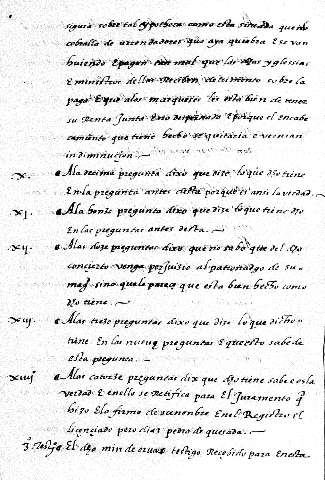 sigura sobre tal ypotheca como esta situada que no
cobralla de arrendadores que aya quiebra e se van
huiendo e pagan tan mal que las y glesias
e ministros dellas Reciben detrimento sobre la
paga e que al marques le esta bien de tener
su Renta Junta porque el encabe
camiento que tiene hecho se quitaria e vernian
en diminucion.
X. A la decima pregunta dixo que dize lo que dho tiene
En la pregunta antes desta porque es ansi la verdad.
XI. A la honze pregunta dixo que dize lo que tiene dho
En las preguntas antes desta.
XII. A las doze preguntas dixo que no sabe que del dho
concierto venga perjuisio al patronadgo de su
magd sino que le parece que esta bien hecho como
dho tiene.
XIII. A las treze preguntas dixo que dize lo que dicho
tiene En las nueve preguntas E que esto sabe de
esta pregunta.
XIIII. A las catorze preguntas dixo que dho tiene sabe es la
verdad E en ello se Retifica para El Juramento q
hizo E lo firmo de su nonbre En el Registro el
licenciado pero diaz piedra de quesada.
tesigo El dho min de testigo Recebido para En esta